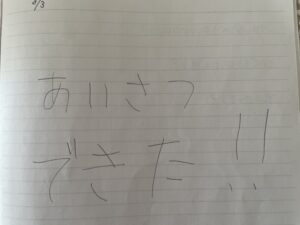 9/3
あいさつ
できた!!